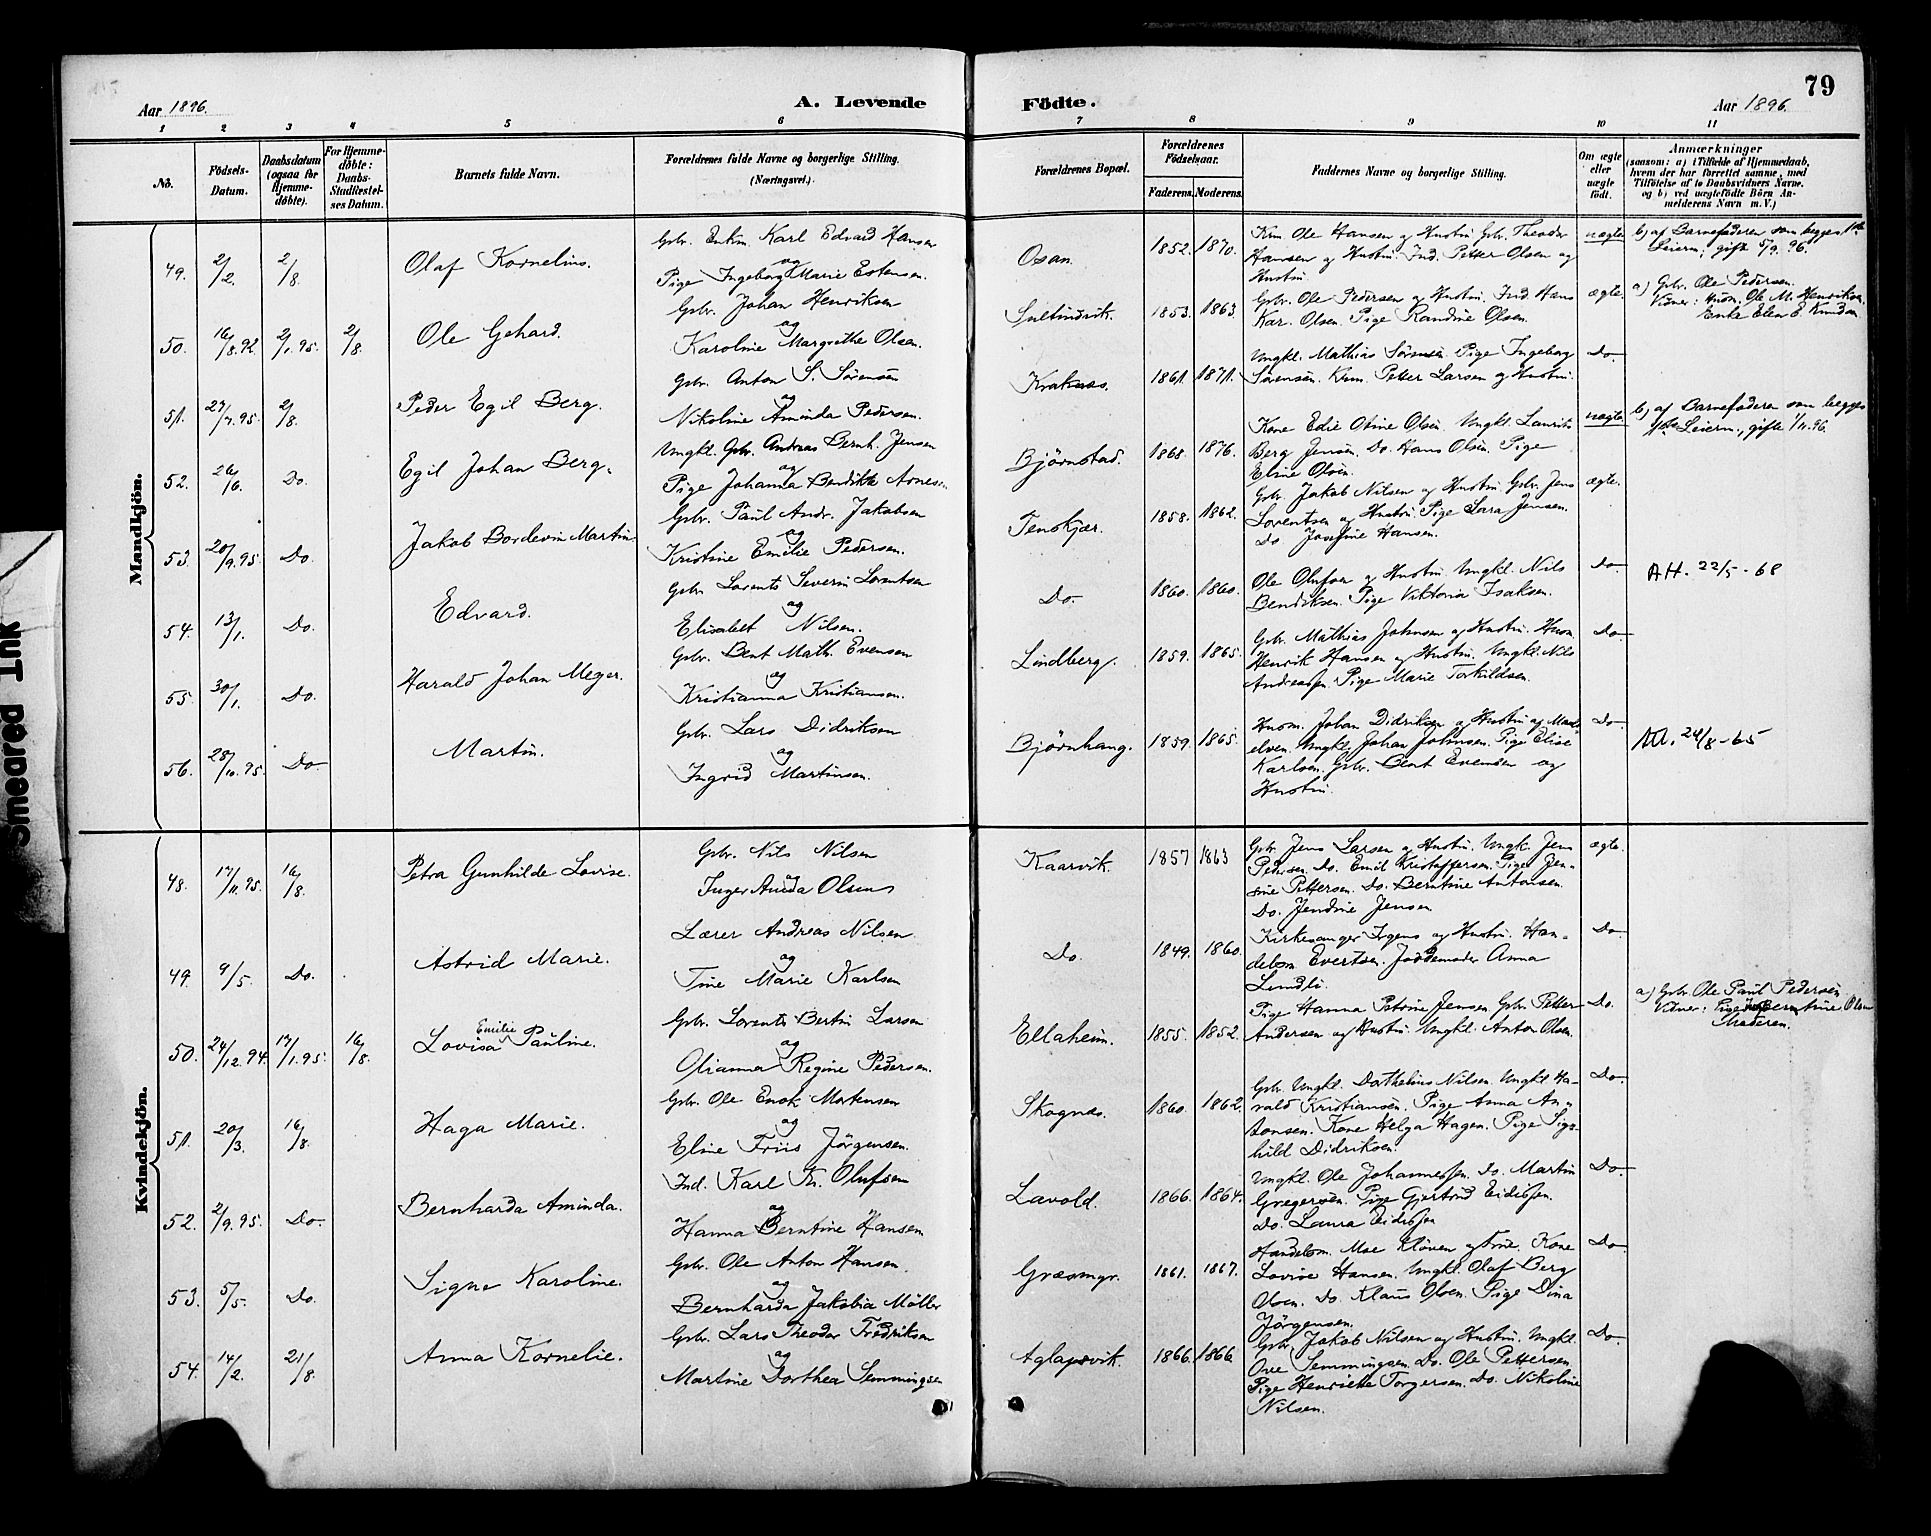 79
Aar 1896.
A. Levende Födte.
Aar 1896.
1 2 3 4 5 6 7 8 9 10 11
No.
Födsels-Datum.
Daabsdatum (ogsaa for Hjemmedöbte).
For Hjemmedöbte: Daabs-Stadfæstelses Datum.
Barnets fulde Navn.
Forældrenes fulde Navne og borgerlige Stilling. (Næringsvei.)
Forældrenes Bopæl.
Forældrenes Födselsaar.
Faderens. Moderens.
Faddernes Navne og borgerlige Stilling.
Om ægte eller uægte født.
Anmærkninger (saasom: a) i Tilfælde af Hjemmedaab, hvem der har forrettet samme, med Tilföielse af to Daabsvidners Navne, og b) ved uægtefödte Börn Anmelderens Navn m. V.)
Mandkjön.
49. 2/2. 2/8 Olaf Kornelius.
Gbr. Enkm. Karl Edvard Hansen
og
Pige Ingeborg Marie Estensen.
Osan. 1852. 1870.
Krm. Ole Hansen og Hustru. Gbr. Theodor
Hansen og Hustru. Ind. Petter Olsen og
Hustru.
uægte
b) af Barnefaderen som begges 1ste
Leierm., gifte 5/9. 96.
50. 16/8. 92. 2/1. 95. 2/8 Ole Gehard.
Gbr. Johan Henriksen
og
Karoline Margrethe Olsen.
Sultindvik. 1853. 1863.
Gbr. Ole Pedersen og Hustru. Ind. Hans
Kar. Olsen. Pige Randine Olsen.
ægte.
a) Gbr. Ole Pedersen.
Vidner: Husm. Ole M. Henriksen.
Enke Elen E. Knudsen
51. 27/7. 95. 2/8. Peder Egil Berg.
Gbr. Anton S. Sørensen
og
Nikoline Aminda Pedersen.
Kraknes. 1861. 1871.
Ungkl. Mathias Sørensen. Pige Ingeborg
Sørensen. Krm. Petter Larsen og Hustru.
Do.
52. 26/6. Do. Egil Johan Berg.
Ungkl. Gbr. Andreas Bernh. Jensen
og
Pige Johanna Bendikte Arnesen
Bjørnstad. 1868. 1876.
Kone Edie Oline Olsen. Ungkl. Laurits
Berg Jensen. Do. Hans Olsen. Pige
Elnie Olsen.
uægte
b) af Barnefaderen som begges
1ste Leierm., gifte 1/11. 96.
53. 20/9. 95. Do. Jakob Bordevin Martin.
Gbr. Paul Andr. Jakobsen
og
Kristine Emilie Pedersen.
Tenskjær. 1858. 1862.
Gbr. Jakob Nilsen og Hustru. Gbr. Jens
Lorentsen og Hustru. Pige Lara Jensen.
Do Josefine Hansen.
ægte.
54. 13/1. Do. Edvard.
Gbr. Lorents Severin Lorentsen
og
Elisabet Nilsen.
Do. 1860. 1860.
Ole Olufsen og Hustru. Ungkl. Nils
Bendiksen. Pige Viktoria Isaksen.
Do.
A.H. 22/5 - 68
55. 30/1. Do. Harald Johan Meyer.
Gbr. Bent Math. Evensen
og
Kristianna Kristiansen.
Lindberg. 1859. 1865.
Gbr. Mathias Johnsen og Hustru. Husm.
Henrik Hansen og Hustru. Ungkl. Nils
Andreassen. Pige Marie Torkildsen.
Do.
56. 28/10. 95. Do. Martin.
Gbr. Lars Didriksen
og
Ingrid Martinsen.
Bjørnhaug. 1859. 1865.
Husm. Johan Didriksen og Hustru
Ungkl. Johan Johnsen. Pige Elise
Karlsen. Gbr. Bent Evensen og
Hustru.
Do.
24/8 - 65
Kvindekjön.
48. 17/11. 95. 16/8. Petra Gunhilde Lovise.
Gbr. Nils Nilsen
Inger Olsen
Kaarvik. 1857 1863
Gbr. Jens Larsen og Hustru. Ungk. Jens
Petersen. Do. Emil Kristoffersen. Pige Jen-
sine Pettersen. Do. Berntine Antonsen.
Do. Jendine Jensen
ægte.
49. 9/5. Do. Astrid Marie.
Lærer Andreas Nilsen.
og
Tine Marie Karlsen
Do. 1849. 1860.
Kirkesanger Irgens og Hustru. Han-
delsm. Evertsen. Jordemoder Anna
Lundli.
Do.
50. 24/12. 94. 17/1. 95. 16/8. Lovisa Emilie Pauline.
Gbr. Lorents Bertin Larsen
og
Olianna Regine Pedersen.
Ellaheim. 1855. 1852.
Pige Hanna Petrine Jensen. Gbr. Petter
Andersen og Hustru. Ungkl. Anton Olsen.
Do.
a) Gbr. Ole Paul Pedersen.
Vidner: Pige Berntine Olsen
Moderen.
51. 20/3. 16/8. Haga Marie.
Gbr. Ole Enok Mortensen
og
Eline Friis Jörgensen.
Skognes. 1860. 1862.
Gbr. Ungkl. Dorthelius Nilsen. Ungkl. Ha-
rald Kristiansen. Pige Anna An-
tonsen. Kone Helga Hagen. Pige Sig-
hild Didriksen.
Do.
52. 2/9. 95. Do. Bernharda Aminda.
Ind. Karl Kr. Olufsen
og
Hanna Berntine Hansen
Lavold. 1866. 1864.
Ungkl. Ole Johannessen. Do. Martin
Gregersen. Pige Gjertrud Eidissen.
Do. Laura Eidissen
Do.
53. 5/5. Do. Signe Karoline.
Gbr. Ole Anton Hansen.
og
Bernharda Jakobia Möller
Græsmyr. 1861. 1867.
Handelsm. Moe Kløven og Frue. Kone
Lovise Hansen. Ungkl. Olaf Berg
Olsen. Do. Klaus Olsen. Pige Dina
Jörgensen.
Do.
54. 14/2. 21/8. Anna Kornelie.
Gbr. Lars Theodor Fredriksen
og
Martine Dorthea Semmingsen
Aglapsvik. 1866. 1866.
Gbr. Jakob Nilsen og Hustru. Ungkl.
Ove Semmingsen. Do. Ole Pettersen.
Pige Henriette Torgersen. Do. Nikoline
Nilsen.
Do.
Smeared Ink